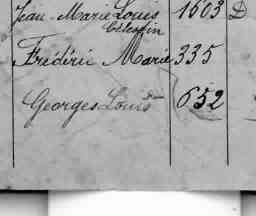 Jean-Marie Louis 1603 D
Célestin
Frédéric Marie 335
Georges Louis 652